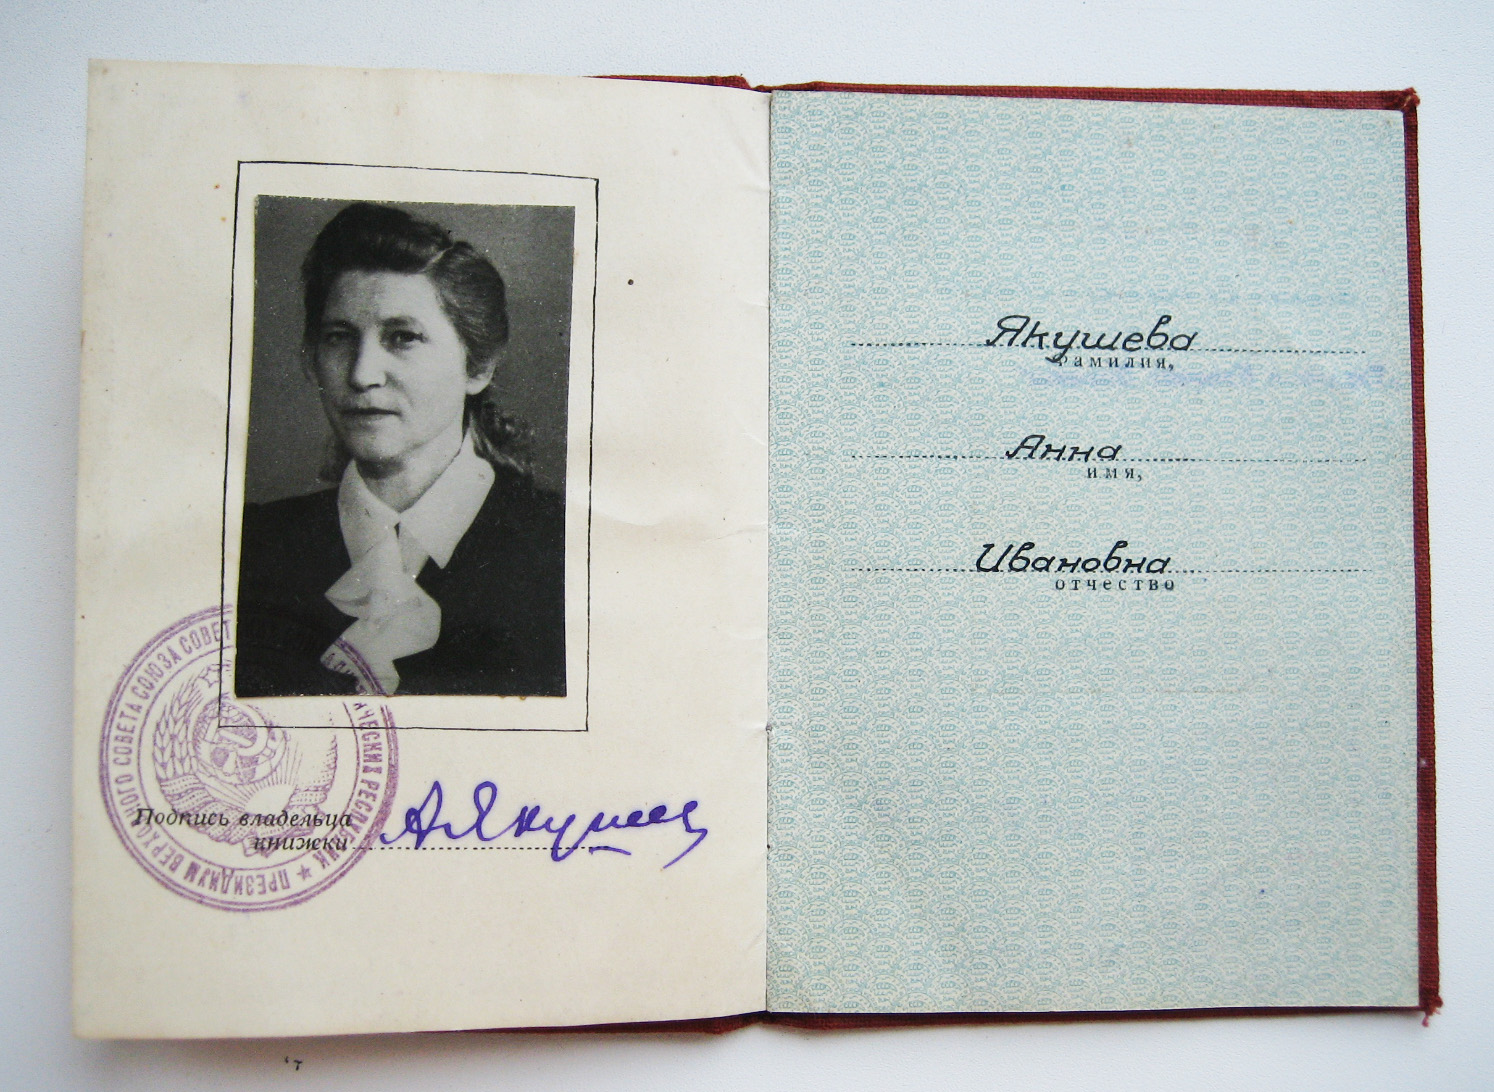 ПРЕЗИДИУМ ВЕРХОВНОГО СОВЕТА СОЮЗА СОВЕТ
ИЧЕСКИХ РЕСПУБЛИК ★
Подпись владельца
книжки
А Якушев
Якушева
фамилия,
Анна
имя,
Ивановна
отчество